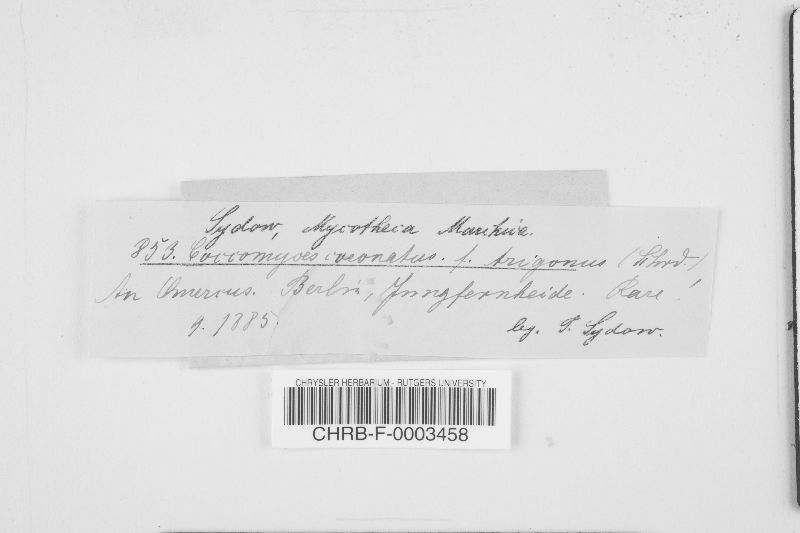 Sydow, Mycotheca Marchica.
853. Coccomyces coronatus. f. trigonus (Schrd.)
An Quercus. Berlin, Jungfernheide. Rare!
9. 1885.
leg. P. Sydow.
CHRYSLER HERBARIUM - RUTGERS UNIVERSITY
CHRB-F-0003458